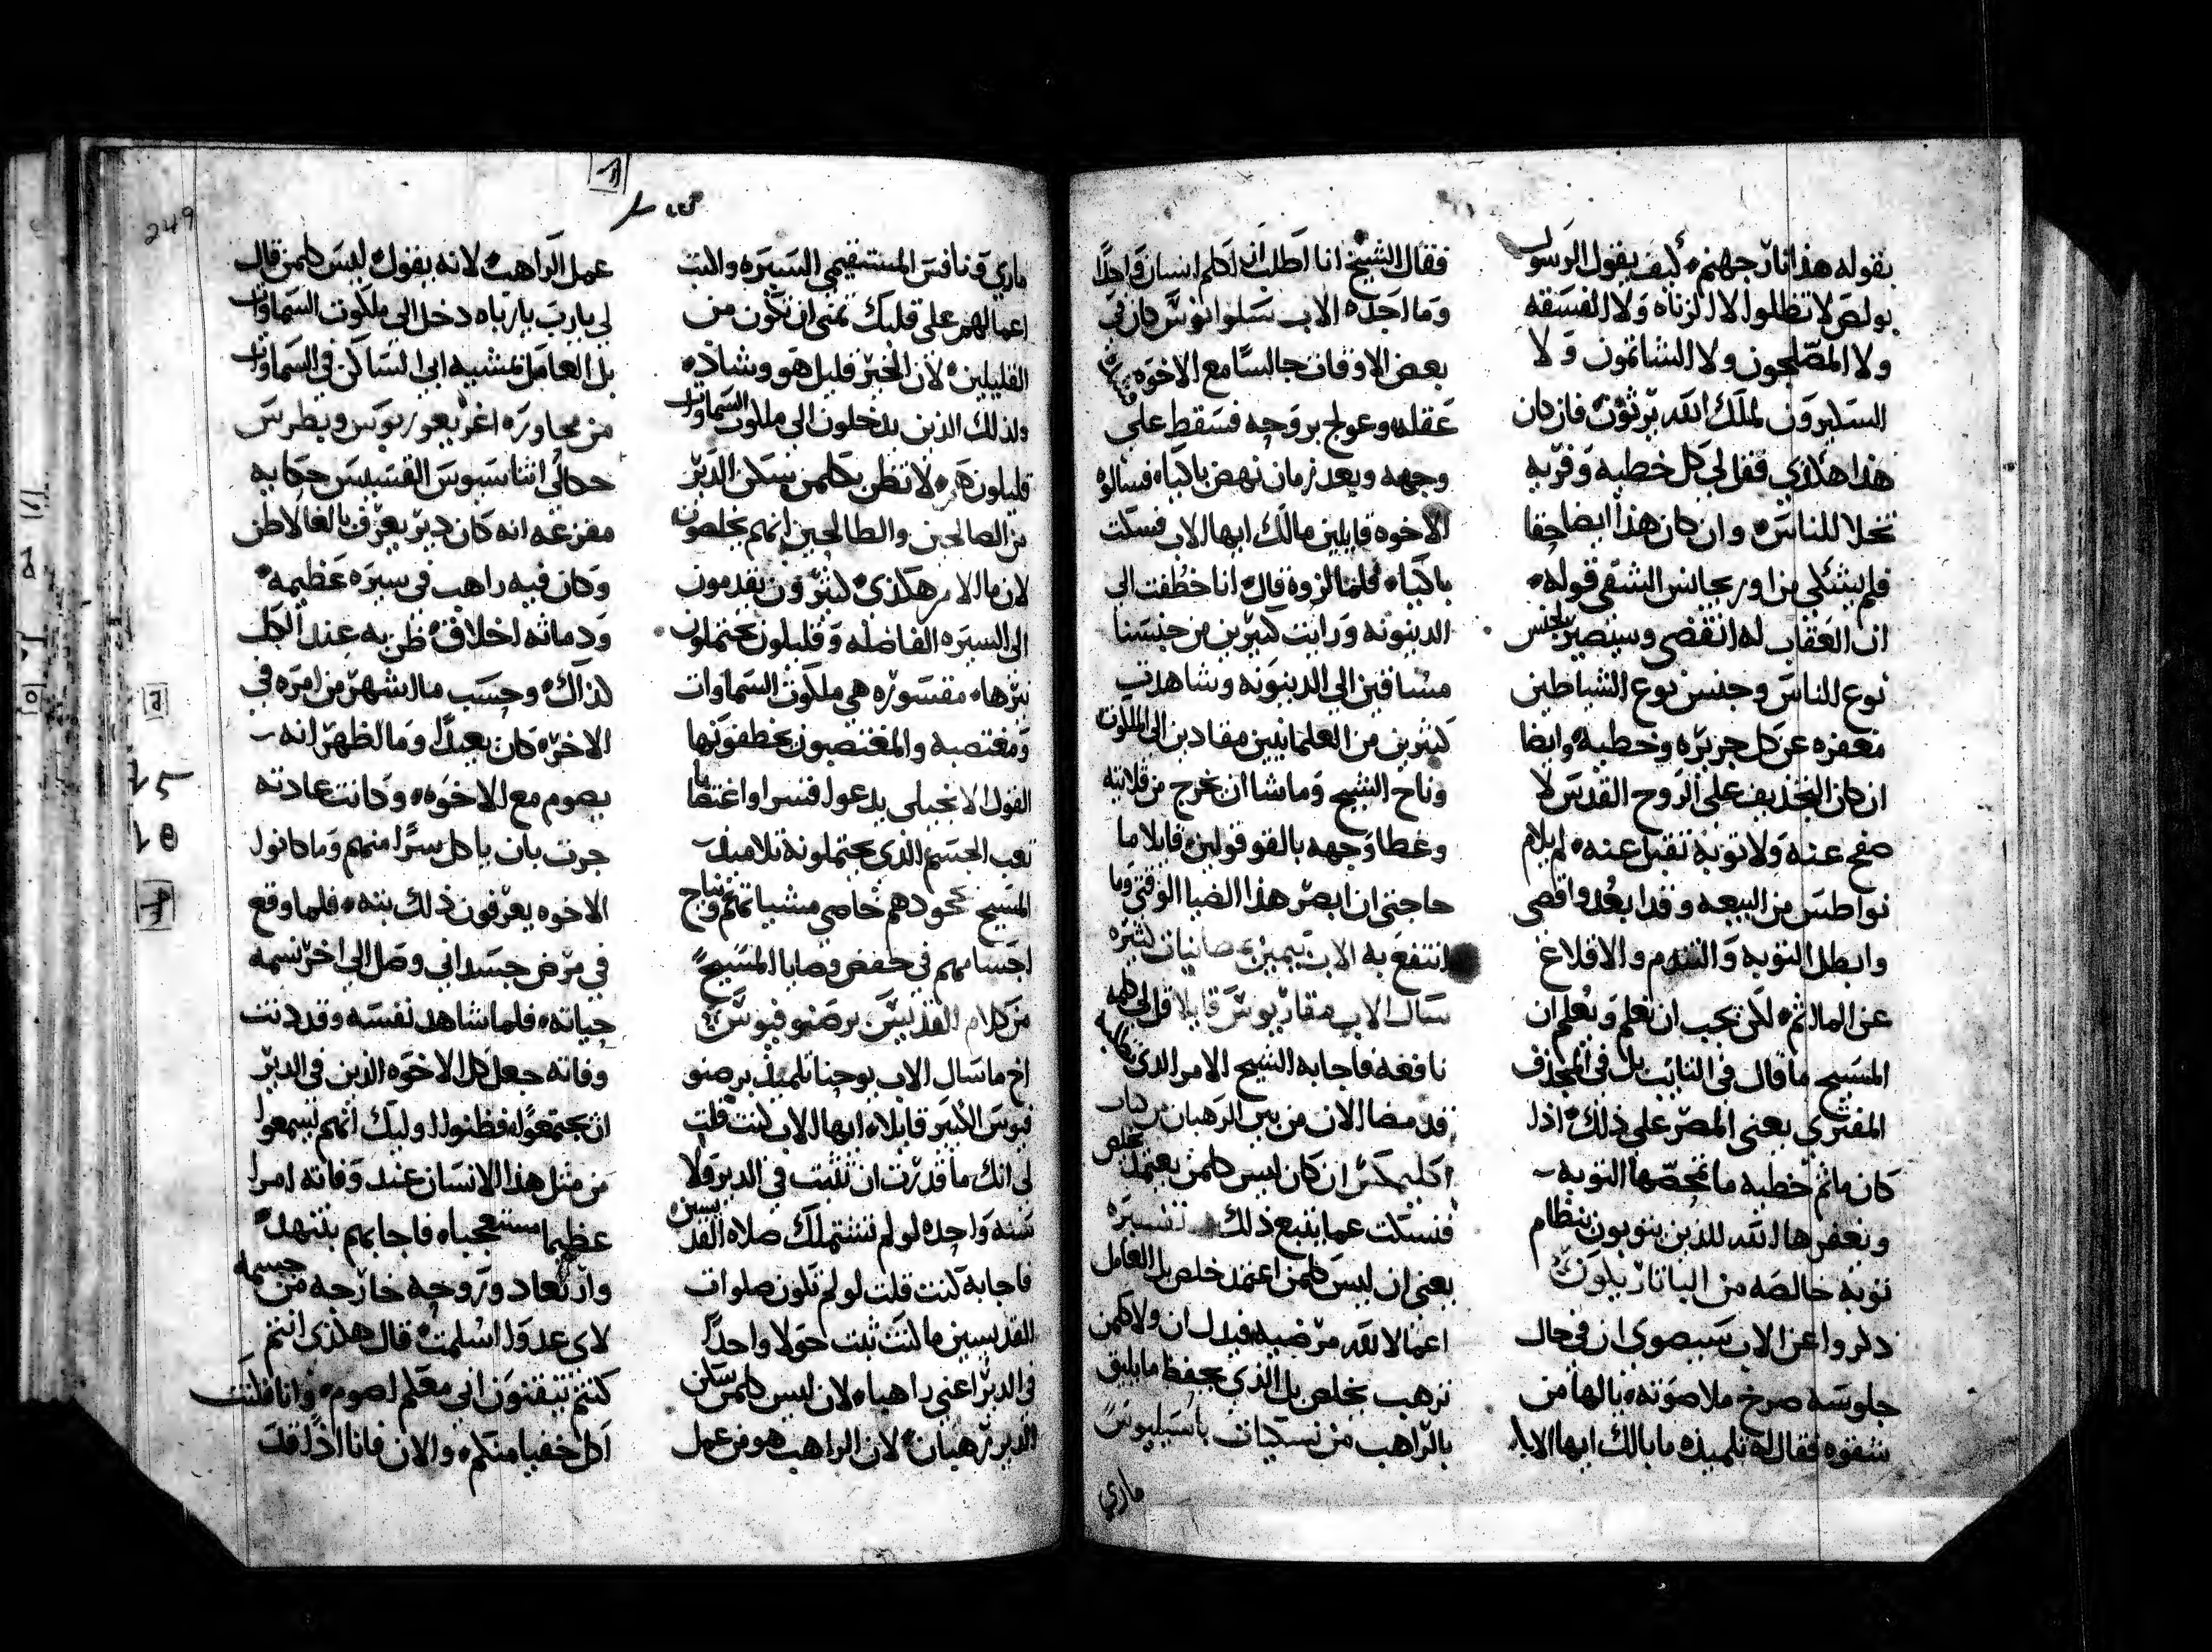 بقوله هذا نار جهنم كيف يقول الرسول
بولص لا تظلوا لا الزناه ولا الفسقه
ولا المضطجعون ولا الشاتمون ولا
السكيرون لملك الله يرثون فان كان
هذا هكذي فقل لي كل خطيه وفريه
تحلا للناس وان كان هذا ايضا حقا
فلم يشكي من اوريجانس الشقي قوله
ان العقاب له انقضى وسيصير لجنس
نوع الناس وجنس نوع الشياطين
مغفره عن كل جريره وخطيه وايضا
ان كان التجديف على الروح القدس لا
صفح عنه ولا توبه تقبل عنه لم يلام
نواطس من البيعه وقد ابعد واقصى
وابطل التوبه والندم والاقلاع
عن الماثم لكن يجب ان نعلم ونعلم ان
المسيح ما قال في التائب بل في المجدف
المفتري يعني المصر على ذلك اذا
كان ماثم خطيه ما تمحصها التوبه
ويغفرها الله للذين يتوبون بنظام
توبه خالصه من اليانار يكون
ذكروا عن الاب سيصوي ان في حال
جلوسه صرخ ملا صوته يا لها من
شقوه فقال له تلميذه ما بالك ايها الاب
فقال الشيخ انا اطلب ان اكلم انسان واحدا
وما اجده الاب سلوانوس كان في
بعض الاوقات جالسا مع الاخوه
عقله وعولج بروحه فسقط على
وجهه وبعد زمان نهض باكيا فسالوه
الاخوه قايلين مالك ايها الاب فسكت
باكيا فلما لزوه قال انا خطفت الى
الدينونه ورايت كثيرين من جنسنا
مساقين الى الدينونه وشاهدت
كثيرين من العلمانيين مقادين الى الملكوت
وناح الشيخ وما شا ان يخرج من قلايته
وغطا وجهه بالقوقولين قايلا ما
حاجتي ان ابصر هذا الضيا الوقتي وما
انتفع به الاب بيمين صانيات كثيره
سال الاب مقاريوس قايلا قل لي كلمه
نافعه فاجابه الشيخ الامر الذي تطلبه
قد مضا الان من بين الرهبان من كتاب
اكليمكس ان كان ليس كلمن يعتمد يخلص
فنسكت عما يتبع ذلك تفسيره
يعني ان ليس كلمن اعتمد خلص بل العامل
اعمالا لله مرضيه فيدل ان ولا كلمن
ترهب يخلص بل الذي يحفظ ما يليق
بالراهب من نسكيات باسيليوس
ماري
ماري ونافس المستقيمي السيره واكتب
اعمالهم على قلبك تمنى ان تكون من
القليلين لان الخير قليل هو وشاذ
ولذلك الذين يدخلون الى ملكوت السماوات
قليلون هم لا تظن بكلمن يسكن الدير
من الصالحين والطالحين انهم يخلصون
لان ما الامر هكذي كثيرون يقدمون
الى السيره الفاضله وقليلون يحتملون
نيرها مقسوره هي ملكوت السماوات
ومغتصبه والمغتصبون يخطفونها
القول الانجيلي يدعوا قسرا واغتصابا
تعب الجسم الذي يحتملونه تلاميذ
المسيح بجحودهم خاصي مشياتهم ونياح
اجسامهم في حفض وصايا المسيح
من كلام القديس برصنوفيوس
اخ ما سال الاب يوحنا تلميذ برصنو
فيوس الكبير قايلا ايها الاب كنت قلت
لي انك ما قدرت ان تثبت في الدير ولا
سنه واحده لو لم تشتملك صلاه القديسين
فاجابه كنت قلت لو لم تكون صلوات
القديسين ما كنت ثبت حولا واحدا
في الدير اعني راهبا لان ليس كلمن سكن
الدير رهبان لان الراهب هو من عمل
عمل الراهب لانه يقول ليس كلمن قال
لي يا رب يا رباه دخل الى ملكوت السماوات
بل العامل لمشيه ابي الساكن في السماوات
من مجاوره اغريغوريوس وبطرس
حكالي اثناسيوس القسيس حكايه
مفزعه انه كان دير يعرف بالغالاطن
وكان فيه راهب في سيره عظيمه
ودماثه اخلاق ظن به عند الكل
كذاك وحسب ما اشهر من امره في
الاخره كان بعيدا وما اظهر انه
يصوم مع الاخوه وكانت عادته
جرت بان ياكل سرا منهم وما كانوا
الاخوه يعرفون ذلك بته فلما وقع
في مرض جسداني وصل الى اخر نسمه
حياته فلما شاهد نفسه وقد دنت
وفاته جعل كل الاخوه الذين في الدير
ان يجتمعوا له فظنوا اوليك انهم يسمعوا
من مثل هذا الانسان عند وفاته امرا
عظيما مستعجبا فاجابهم بتنهد
وارتعاد وروحه خارجه من جسمه
لاي عدو اسلمت قال هكذى انتم
كنتم تتيقنون اني معكم اصوم وانا فكنت
اكل خفيا منكم والان فانا اذا قد
249